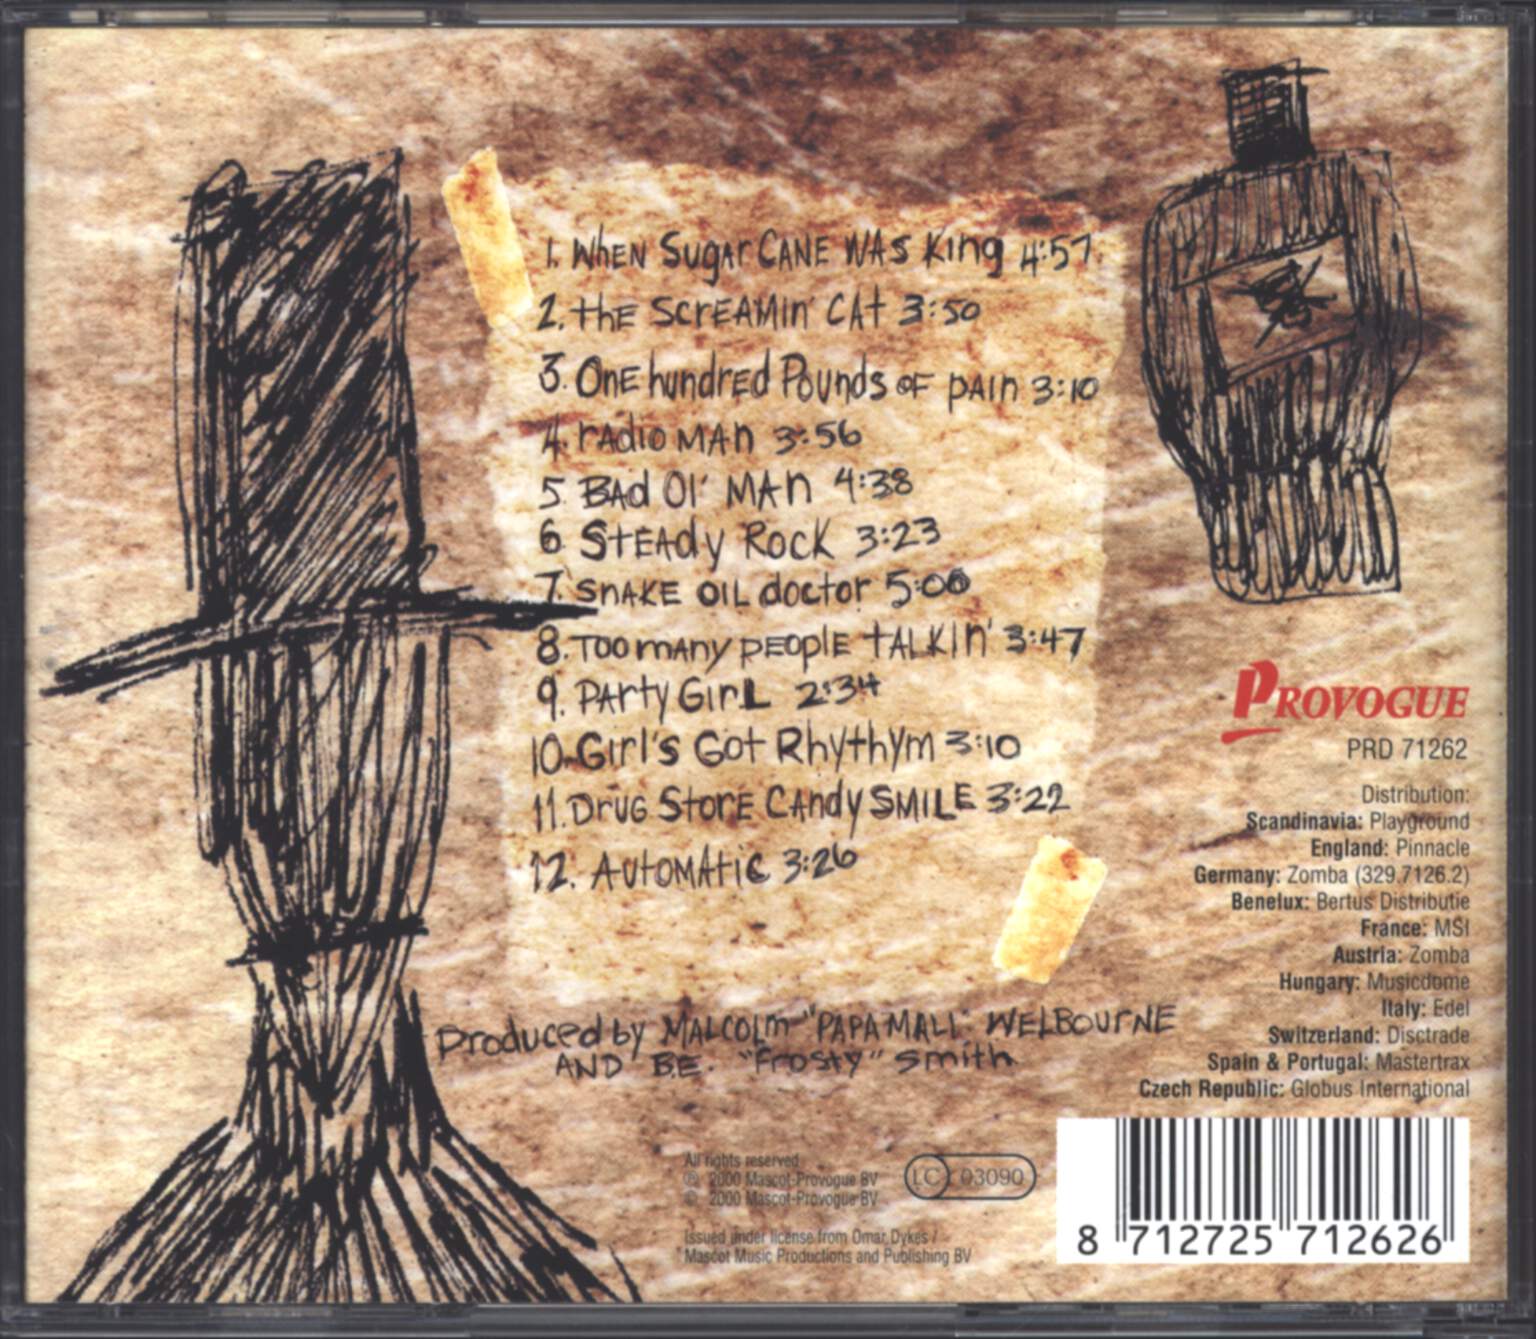 1. When Sugar Cane was King 4:57
2. the Screamin' Cat 3:50
3. One hundred Pounds of pain 3:10
4. radio man 3:56
5 Bad Ol' Man 4:38
6. Steady Rock 3:23
7. snake oil doctor 5:00
8. Too many people talkin' 3:47
9. Party Girl 2:34
10. Girl's Got Rhythym 3:10
11. Drug Store Candy Smile 3:22
12. Automatic 3:26
Produced by Malcolm "Papa Mali" Welbourne
and B.E. "Frosty" Smith
PROVOGUE
PRD 71262
Distribution:
Scandinavia: Playground
England: Pinnacle
Germany: Zomba (329.7126.2)
Benelux: Bertus Distributie
France: MSI
Austria: Zomba
Hungary: Musicdome
Italy: Edel
Switzerland: Disctrade
Spain & Portugal: Mastertrax
Czech Republic: Globus International
All rights reserved
℗ 2000 Mascot-Provogue BV
© 2000 Mascot-Provogue BV
LC 03090
Issued under license from Omar Dykes /
Mascot Music Productions and Publishing BV
8 712725 712626